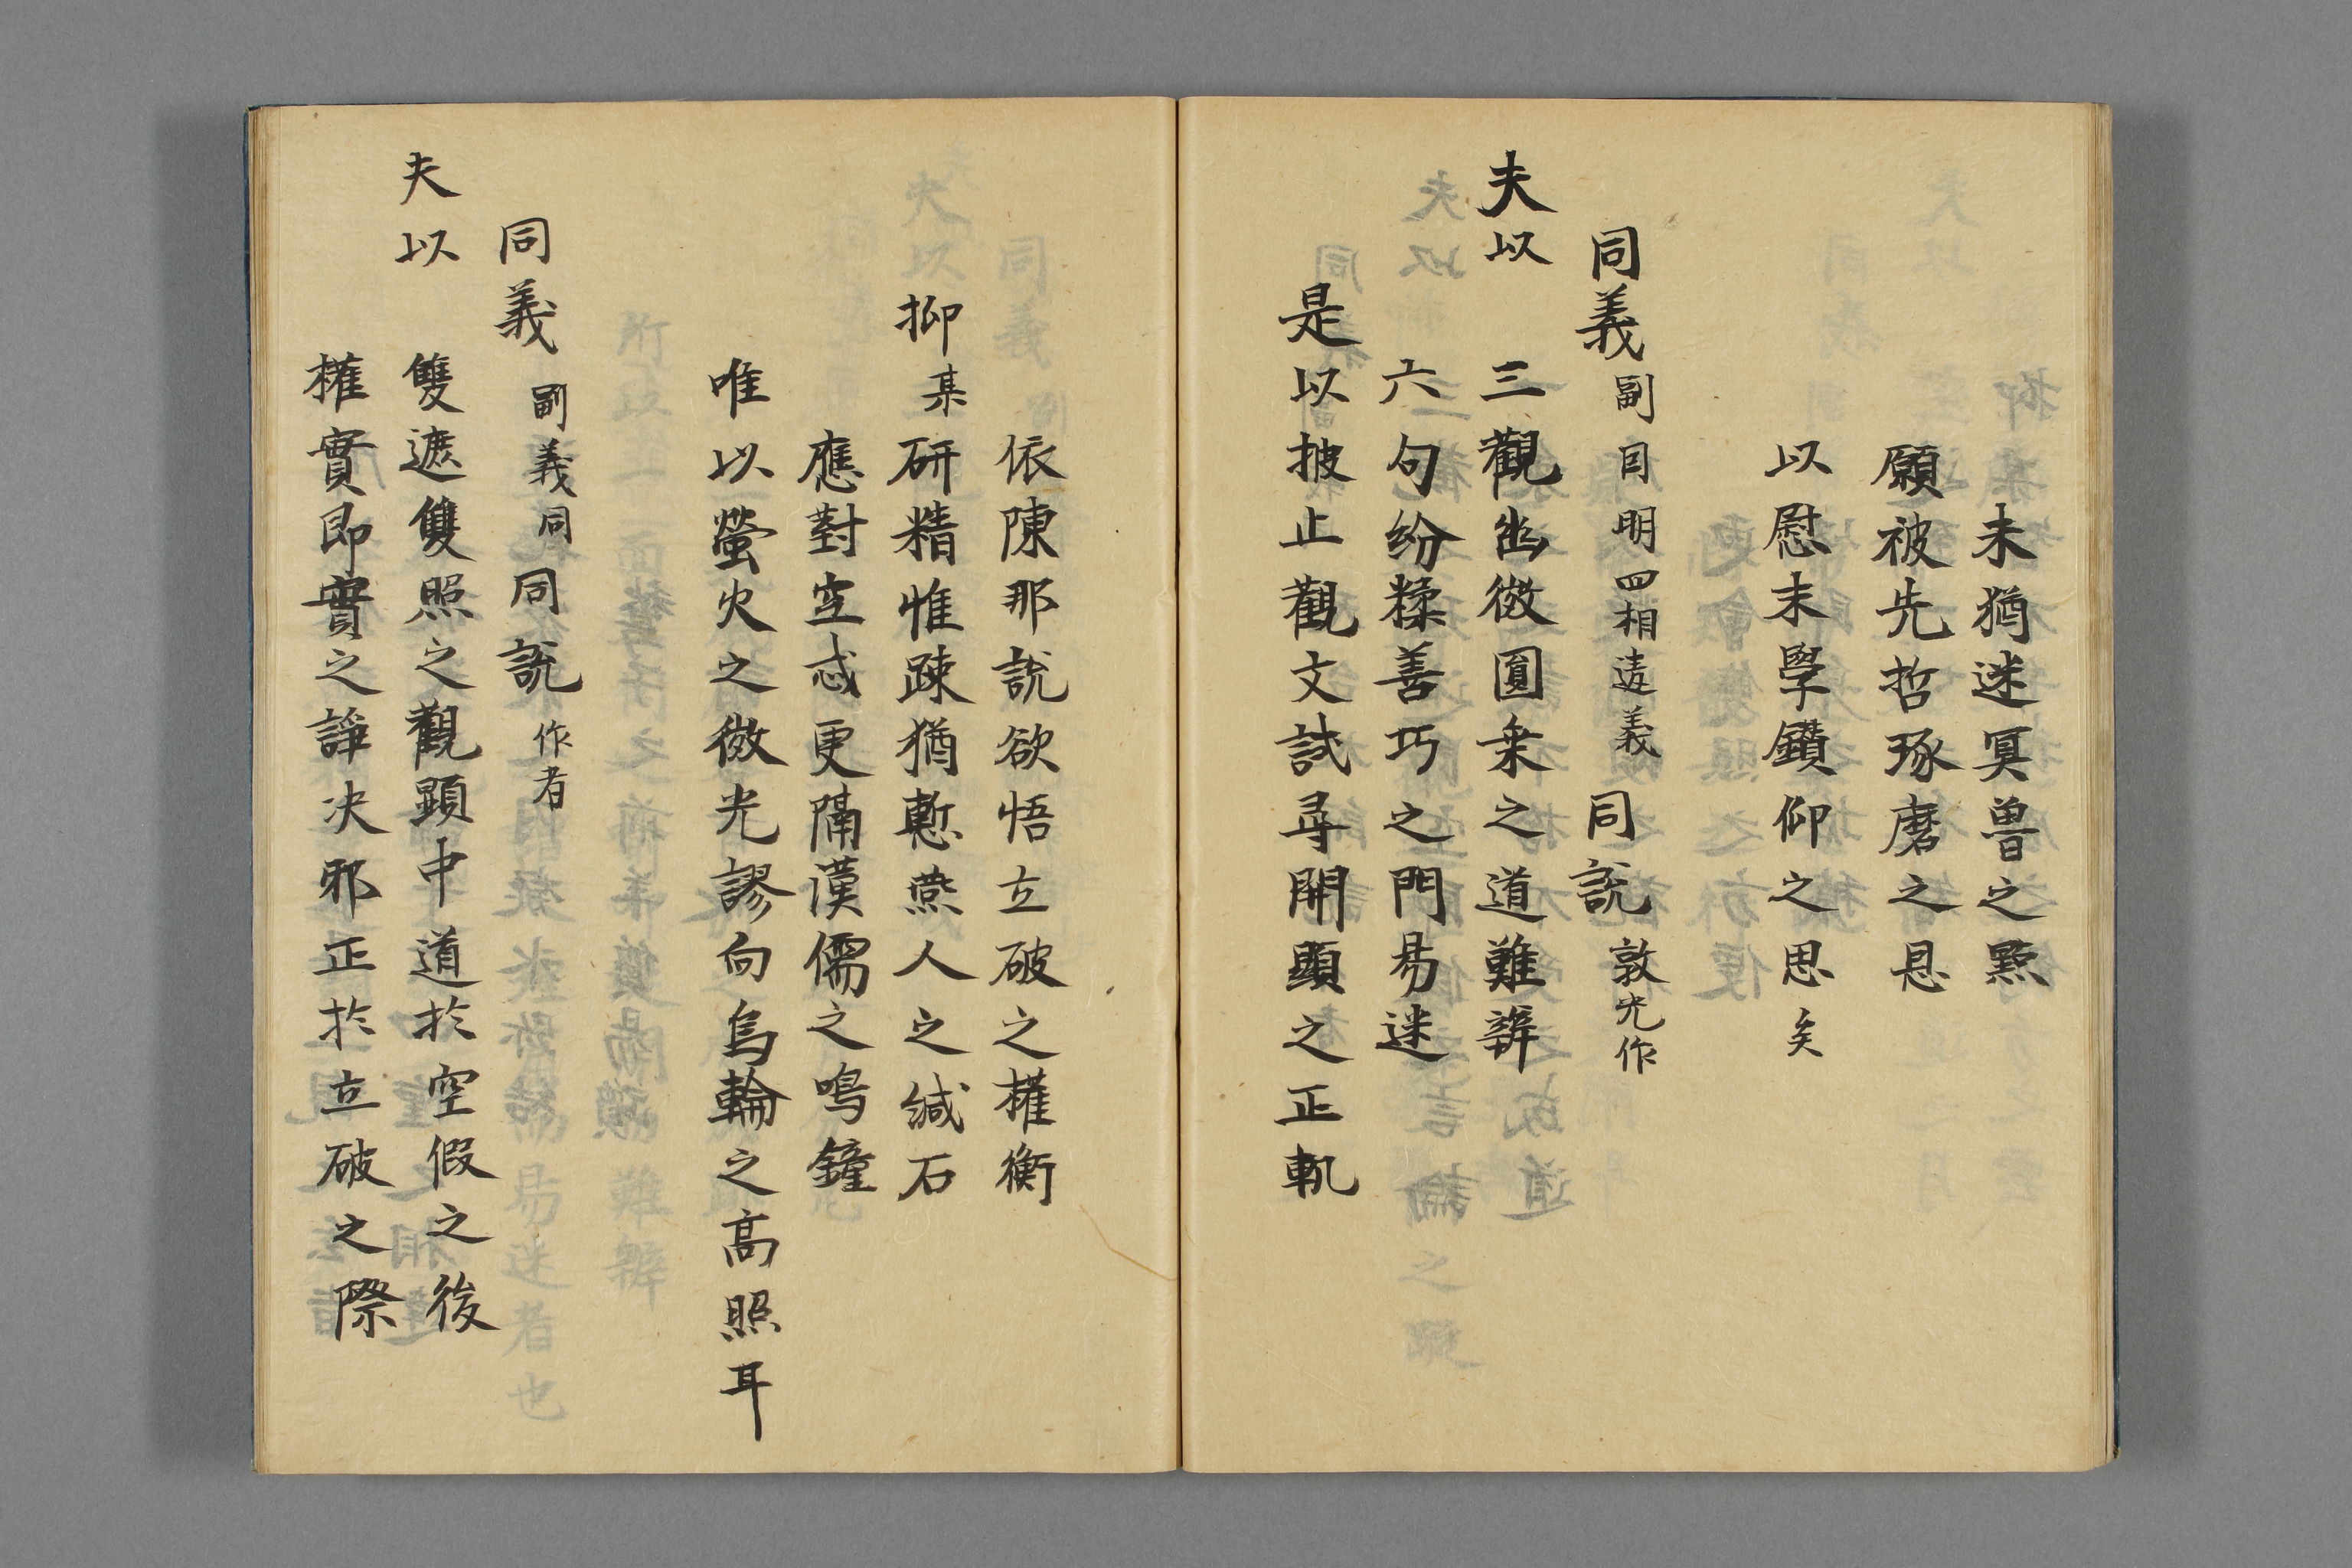 未猶迷冥兽之點
願被先哲琢磨之恩
以慰末學鑽仰之思矣
同義副因明四相違義 同説敦光作
夫以 三觀幽微圓乗之道難辨
六句紛糅善巧之門易迷
是以披止觀文試尋開顕之正軌
依陳那説欲悟立破之權衡
抑某研精惟踈猶慙燕人之緘石
應對空忒更隔漢儒之鳴鐘
唯以螢火之微光謬向烏輪之高照耳
同義副義同 同説作者
夫以 雙遮雙照之觀顕中道於空假之後
權實即實之諍决邪正於立破之際